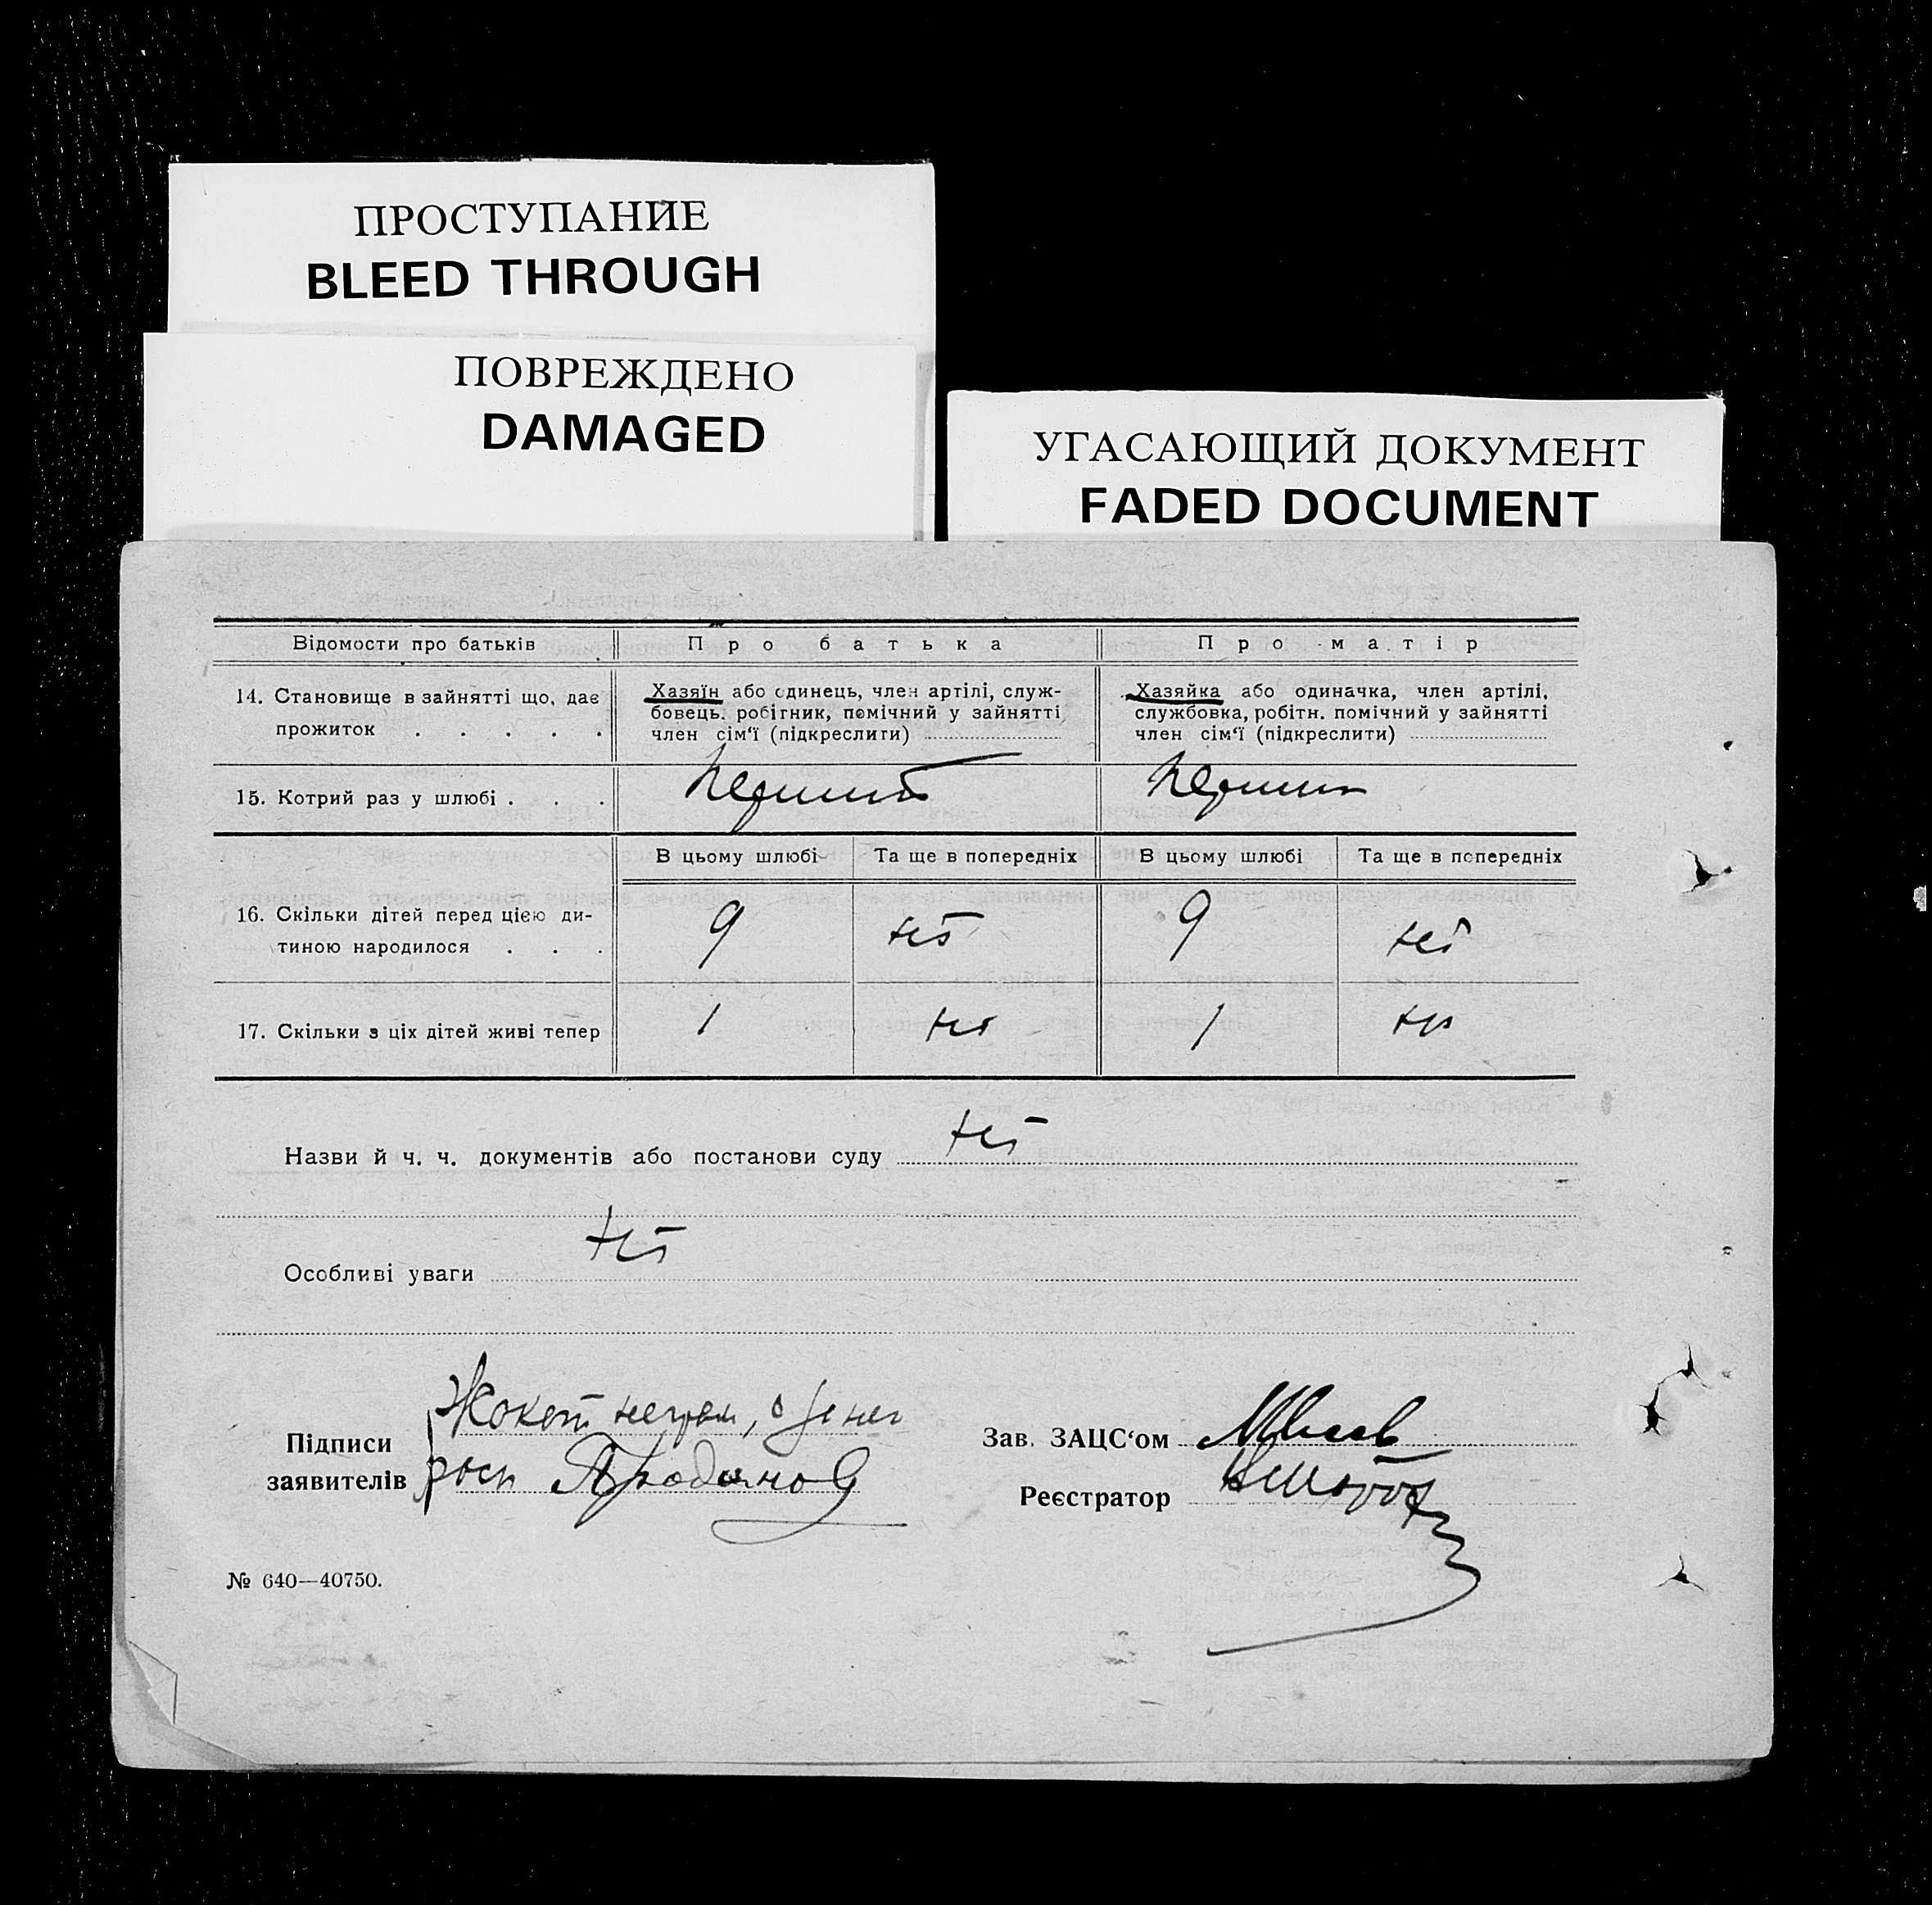 ПРОСТУПАНИЕ
BLEED THROUGH
ПОВРЕЖДЕНО
DAMAGED
УГАСАЮЩИЙ ДОКУМЕНТ
FADED DOCUMENT
Відомости про батьків Про батька Про матір
14. Становище в зайнятті що, дає
прожиток . . . . .
Хазяїн або одинець, член артілі, служ-
бовець. робітник, помічний у зайнятті
член сім‘ї (підкреслити)
Хазяйка або одиначка, член артілі,
службовка, робітн. помічний у зайнятті
член сім‘ї (підкреслити)
15. Котрий раз у шлюбі . . .
В цьому шлюбі Та ще в попередніх В цьому шлюбі Та ще в попередніх
16. Скільки дітей перед цією ди-
тиною народилося . . . 9 нет 9 нет
17. Скільки з ціх дітей живі тепер 1 нет 1 нет
Назви й ч. ч. документів або постанови суду нет
Особливі уваги нет
Підписи
заявителів
Зав. ЗАЦС‘ом
Реєстратор
№ 640—40750.